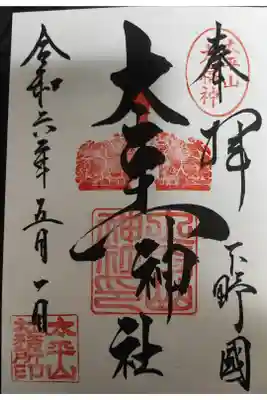 奉拝
下野國
太平山神社
令和六年五月一日
太平山
社務所印